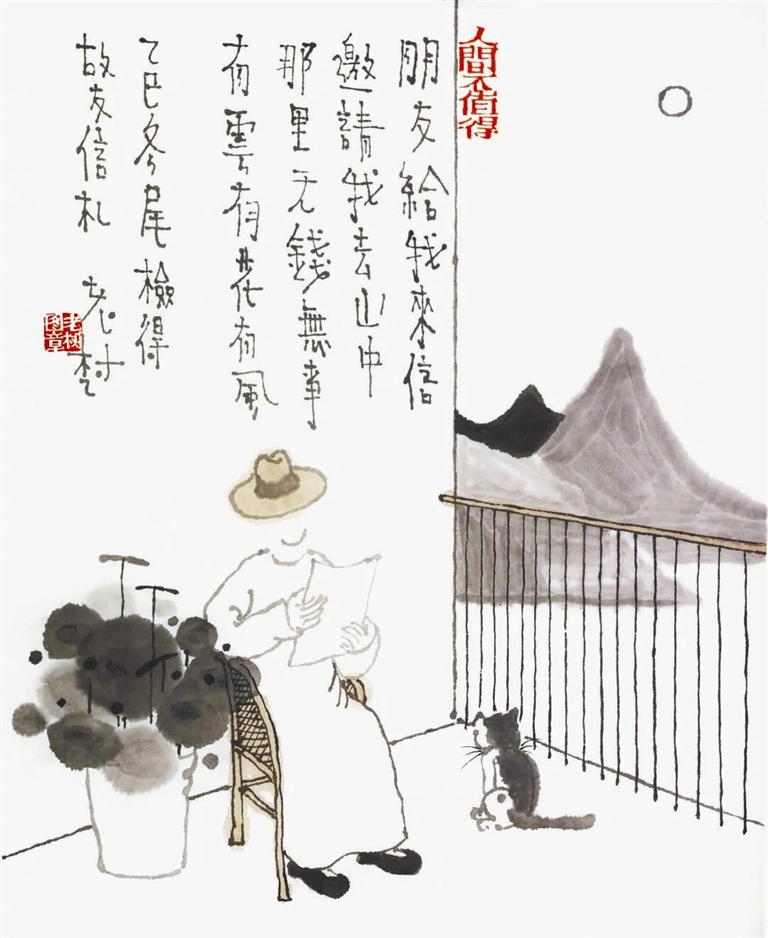 人間不值得
朋友給我來信
邀請我去山中
那里无錢無事
有雲有花有风
乙巳冬尾檢得
故友信札 老村
老树图章